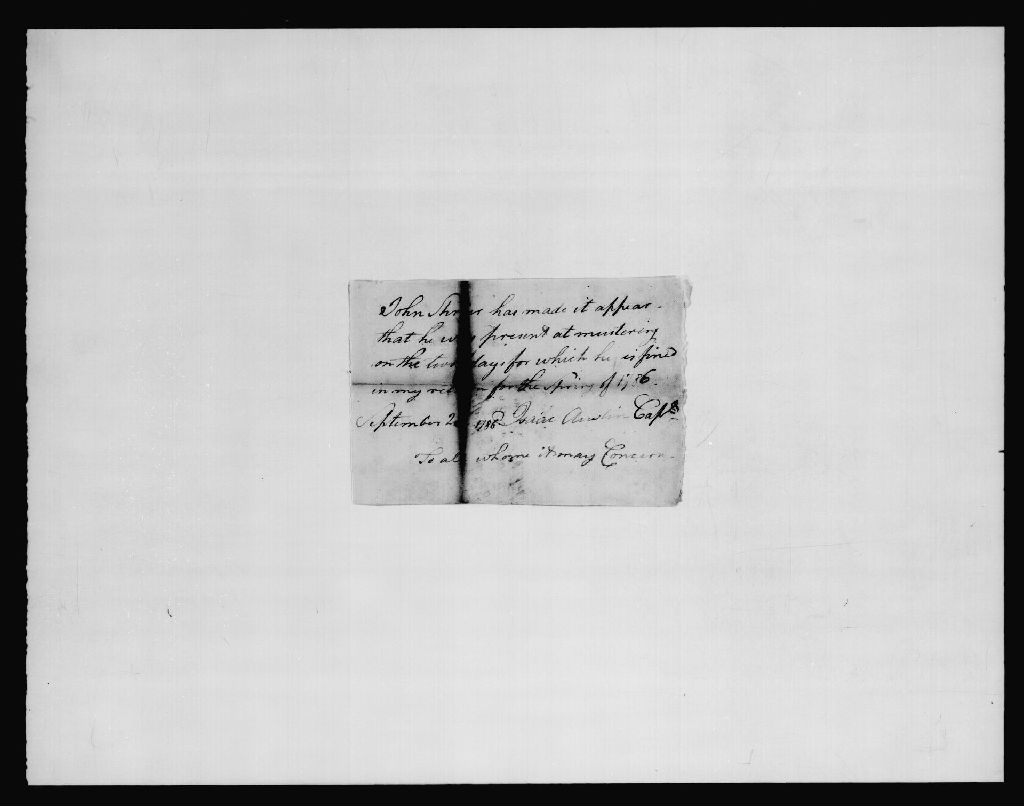 John has made it appear
that he was present at mustering
on the two days for which he is fined
in my return for the spring of 1786.
September 1786 Isaac Austin Capt
To all whome it may Concern